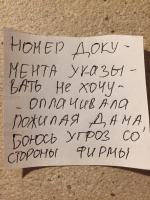 НОМЕР ДОКУ-
МЕНТА УКАЗЫ-
ВАТЬ НЕ ХОЧУ-
- ОПЛАЧИВАЛА
ПОЖИЛАЯ ДАМА
БОЮСЬ УГРОЗ СО
СТОРОНЫ ФИРМЫ